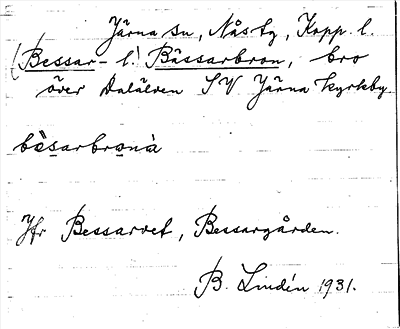 Järna sn, Nås tg, Kopp. l.
(Bessar- l.) Bässarbron, bro
över Dalälven SV Järna kyrkby.
bæ̀sarbronà
Jfr Bessarvet, Bessargården.
B. Lindén 1931.